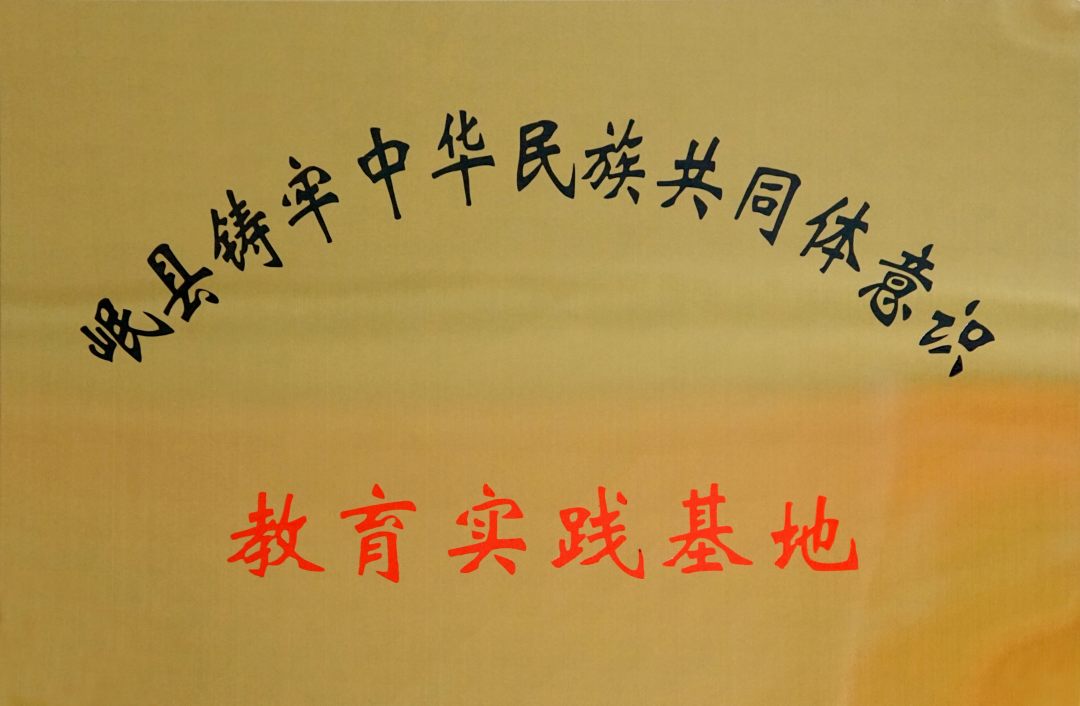 岷县铸牢中华民族共同体意识
教育实践基地